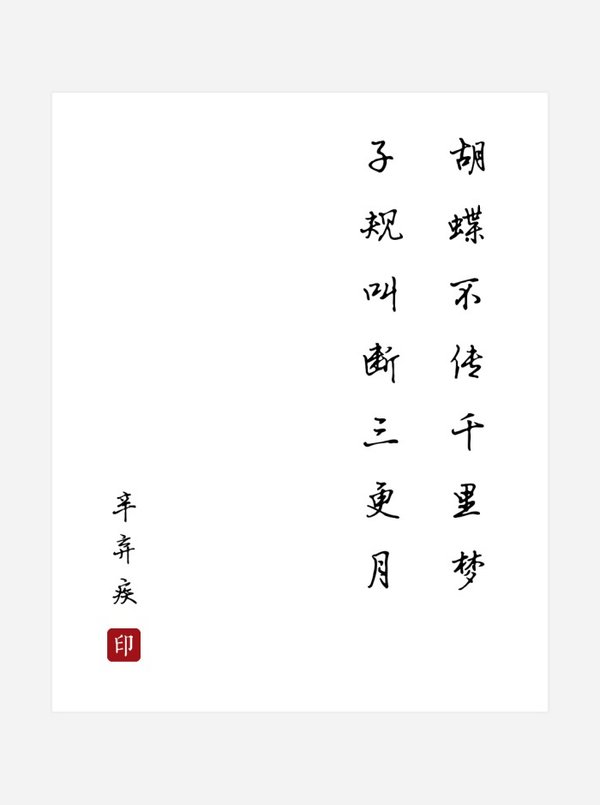 胡蝶不传千里梦
子规叫断三更月
辛弃疾
印